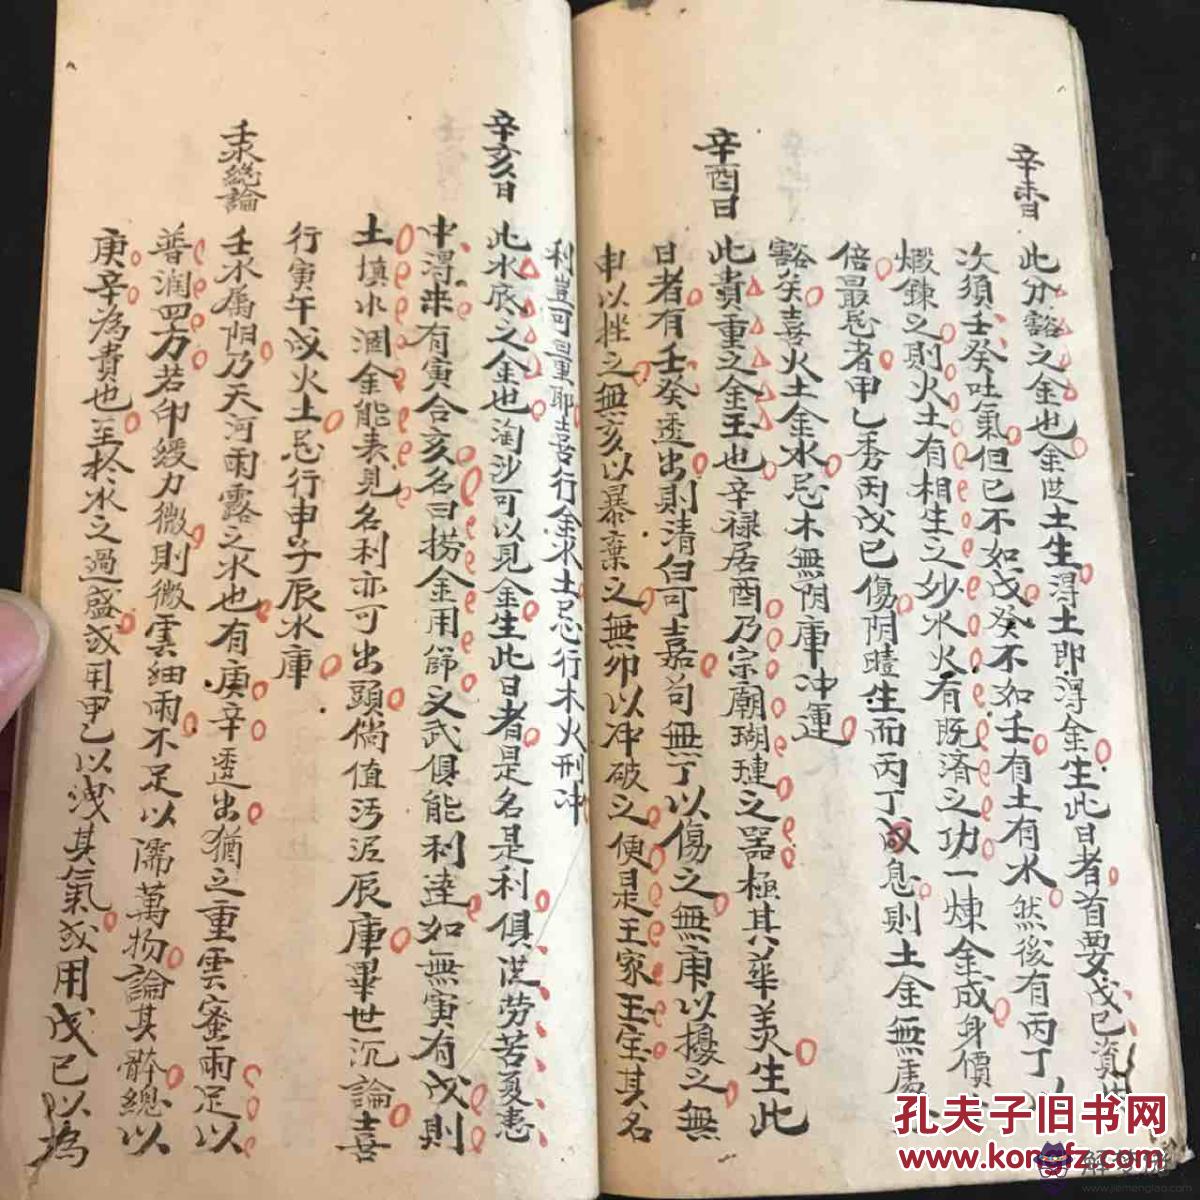 辛未日
此分豁之金也金從土生得土即得金生此日者首要戊己資
次須壬癸吐氣但己不如戊癸不如壬有土有水然後有丙丁
煅鍊之則火土有相生之妙水火有既济之功一煉金成身價
倍最忌者甲乙秀丙戊已傷阴瞌生而丙丁戊息則土金無馬
豁矣喜火土金水忌木無阴庫冲運
辛酉日
此貴重之金玉也辛禄居酉乃宗廟瑚璉之器極其華美生此
日者有壬癸透出則清白可嘉苟無丁以傷之無庚以擾之無
申以挫之無亥以暴棄之無卯以冲破之便是王家玉宝其名
利豈可量耶喜行金水土忌行木火刑冲
辛亥日
此水底之金也淘沙可以見金生此日者是名是利俱從劳苦憂患
中淂来有寅合亥名曰捞金用篩文武俱能利達如無寅有戌則
土填水涸金能表見名利亦可出頭倘值污泥辰庫畢世沉論喜
行寅午戌火土忌行申子辰水庫
壬水總論
壬水属阳乃天河雨露之水也有庚辛透出猶之重雲蜜雨足以
普润四方若印緩力微則微雲細雨不足以濡萬物論其體總以
庚辛為貴也至扵水之過盛或用甲乙以洩其氣或用戊己以為
孔夫子旧书网
www.kongfz.com
解梦佬
www.jiemenglao.com